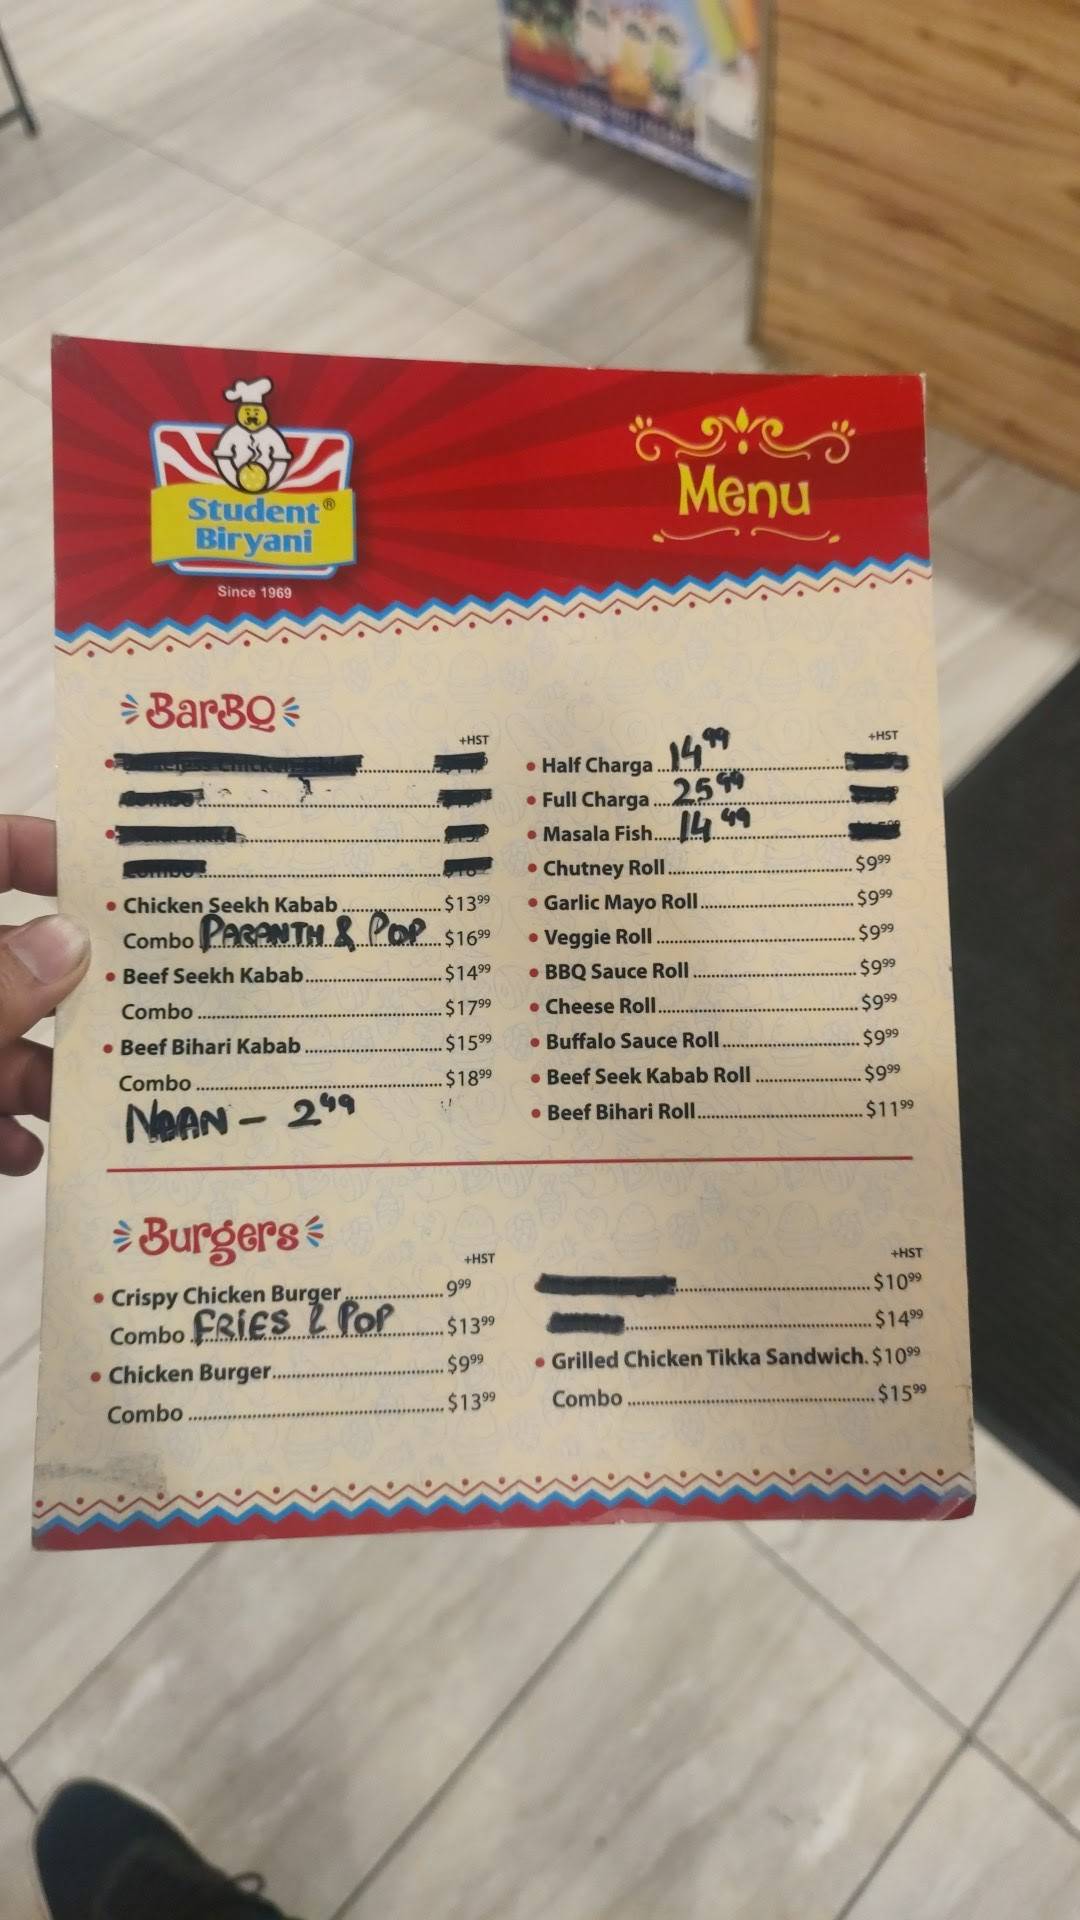 Student®
Biryani
Since 1969
Menu
BarBQ
+HST
Chicken Seekh Kabab $13⁹⁹
Combo PARANTH & POP $16⁹⁹
Beef Seekh Kabab $14⁹⁹
Combo $17⁹⁹
Beef Bihari Kabab $15⁹⁹
Combo $18⁹⁹
NAAN - 2⁴⁹
+HST
Half Charga 14⁹⁹
Full Charga 25⁹⁹
Masala Fish 14⁹⁹
Chutney Roll $9⁹⁹
Garlic Mayo Roll $9⁹⁹
Veggie Roll $9⁹⁹
BBQ Sauce Roll $9⁹⁹
Cheese Roll $9⁹⁹
Buffalo Sauce Roll $9⁹⁹
Beef Seek Kabab Roll $9⁹⁹
Beef Bihari Roll $11⁹⁹
Burgers
+HST
Crispy Chicken Burger 9⁹⁹
Combo FRIES & POP $13⁹⁹
Chicken Burger $9⁹⁹
Combo $13⁹⁹
+HST
$10⁹⁹
$14⁹⁹
Grilled Chicken Tikka Sandwich. $10⁹⁹
Combo $15⁹⁹